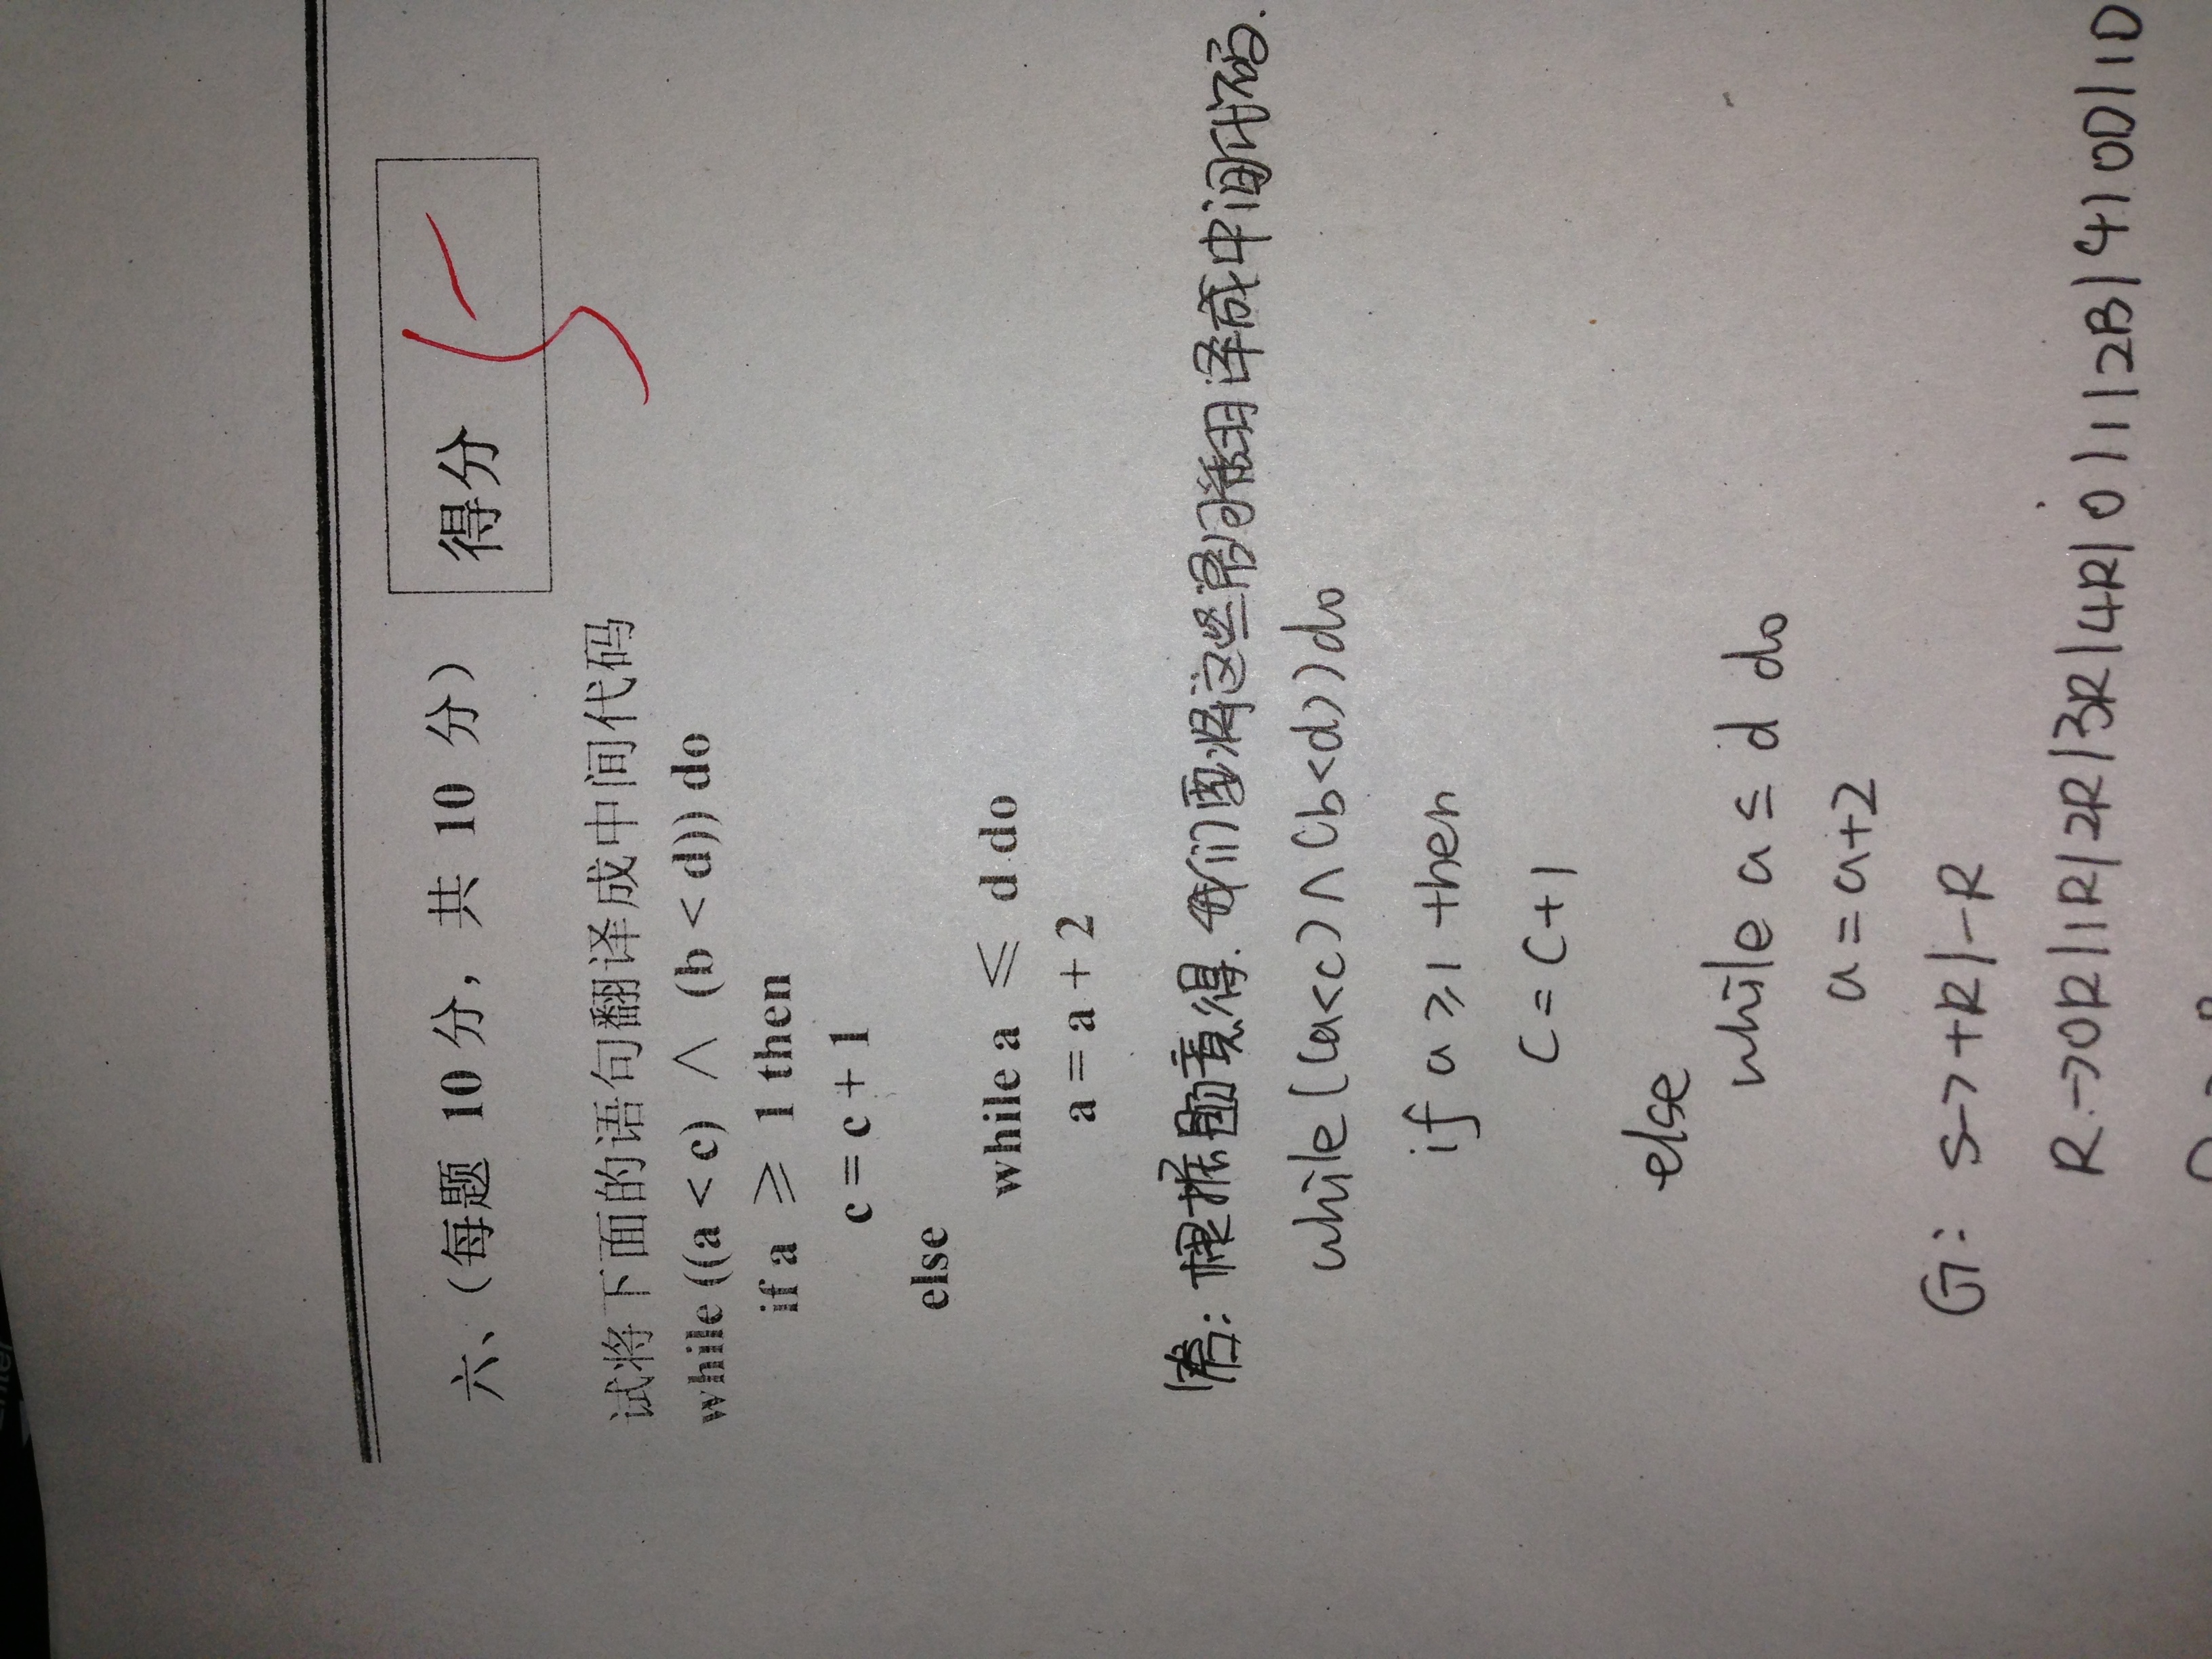 Enter
六、（每题 10 分，共 10 分）
得分 5
试将下面的语句翻译成中间代码
while ((a < c) ∧ (b < d)) do
if a ⩾ 1 then
c = c + 1
else
while a ⩽ d do
a = a + 2
答：根据题意得.我们要将这些语句翻译成中间代码.
while((a<c)∧(b<d))do
if a⩾1 then
c=c+1
else
while a≤d do
a=a+2
G: S->+R|-R
R->0R|1R|2R|3R|4R|0|1|2B|4|0D|1D